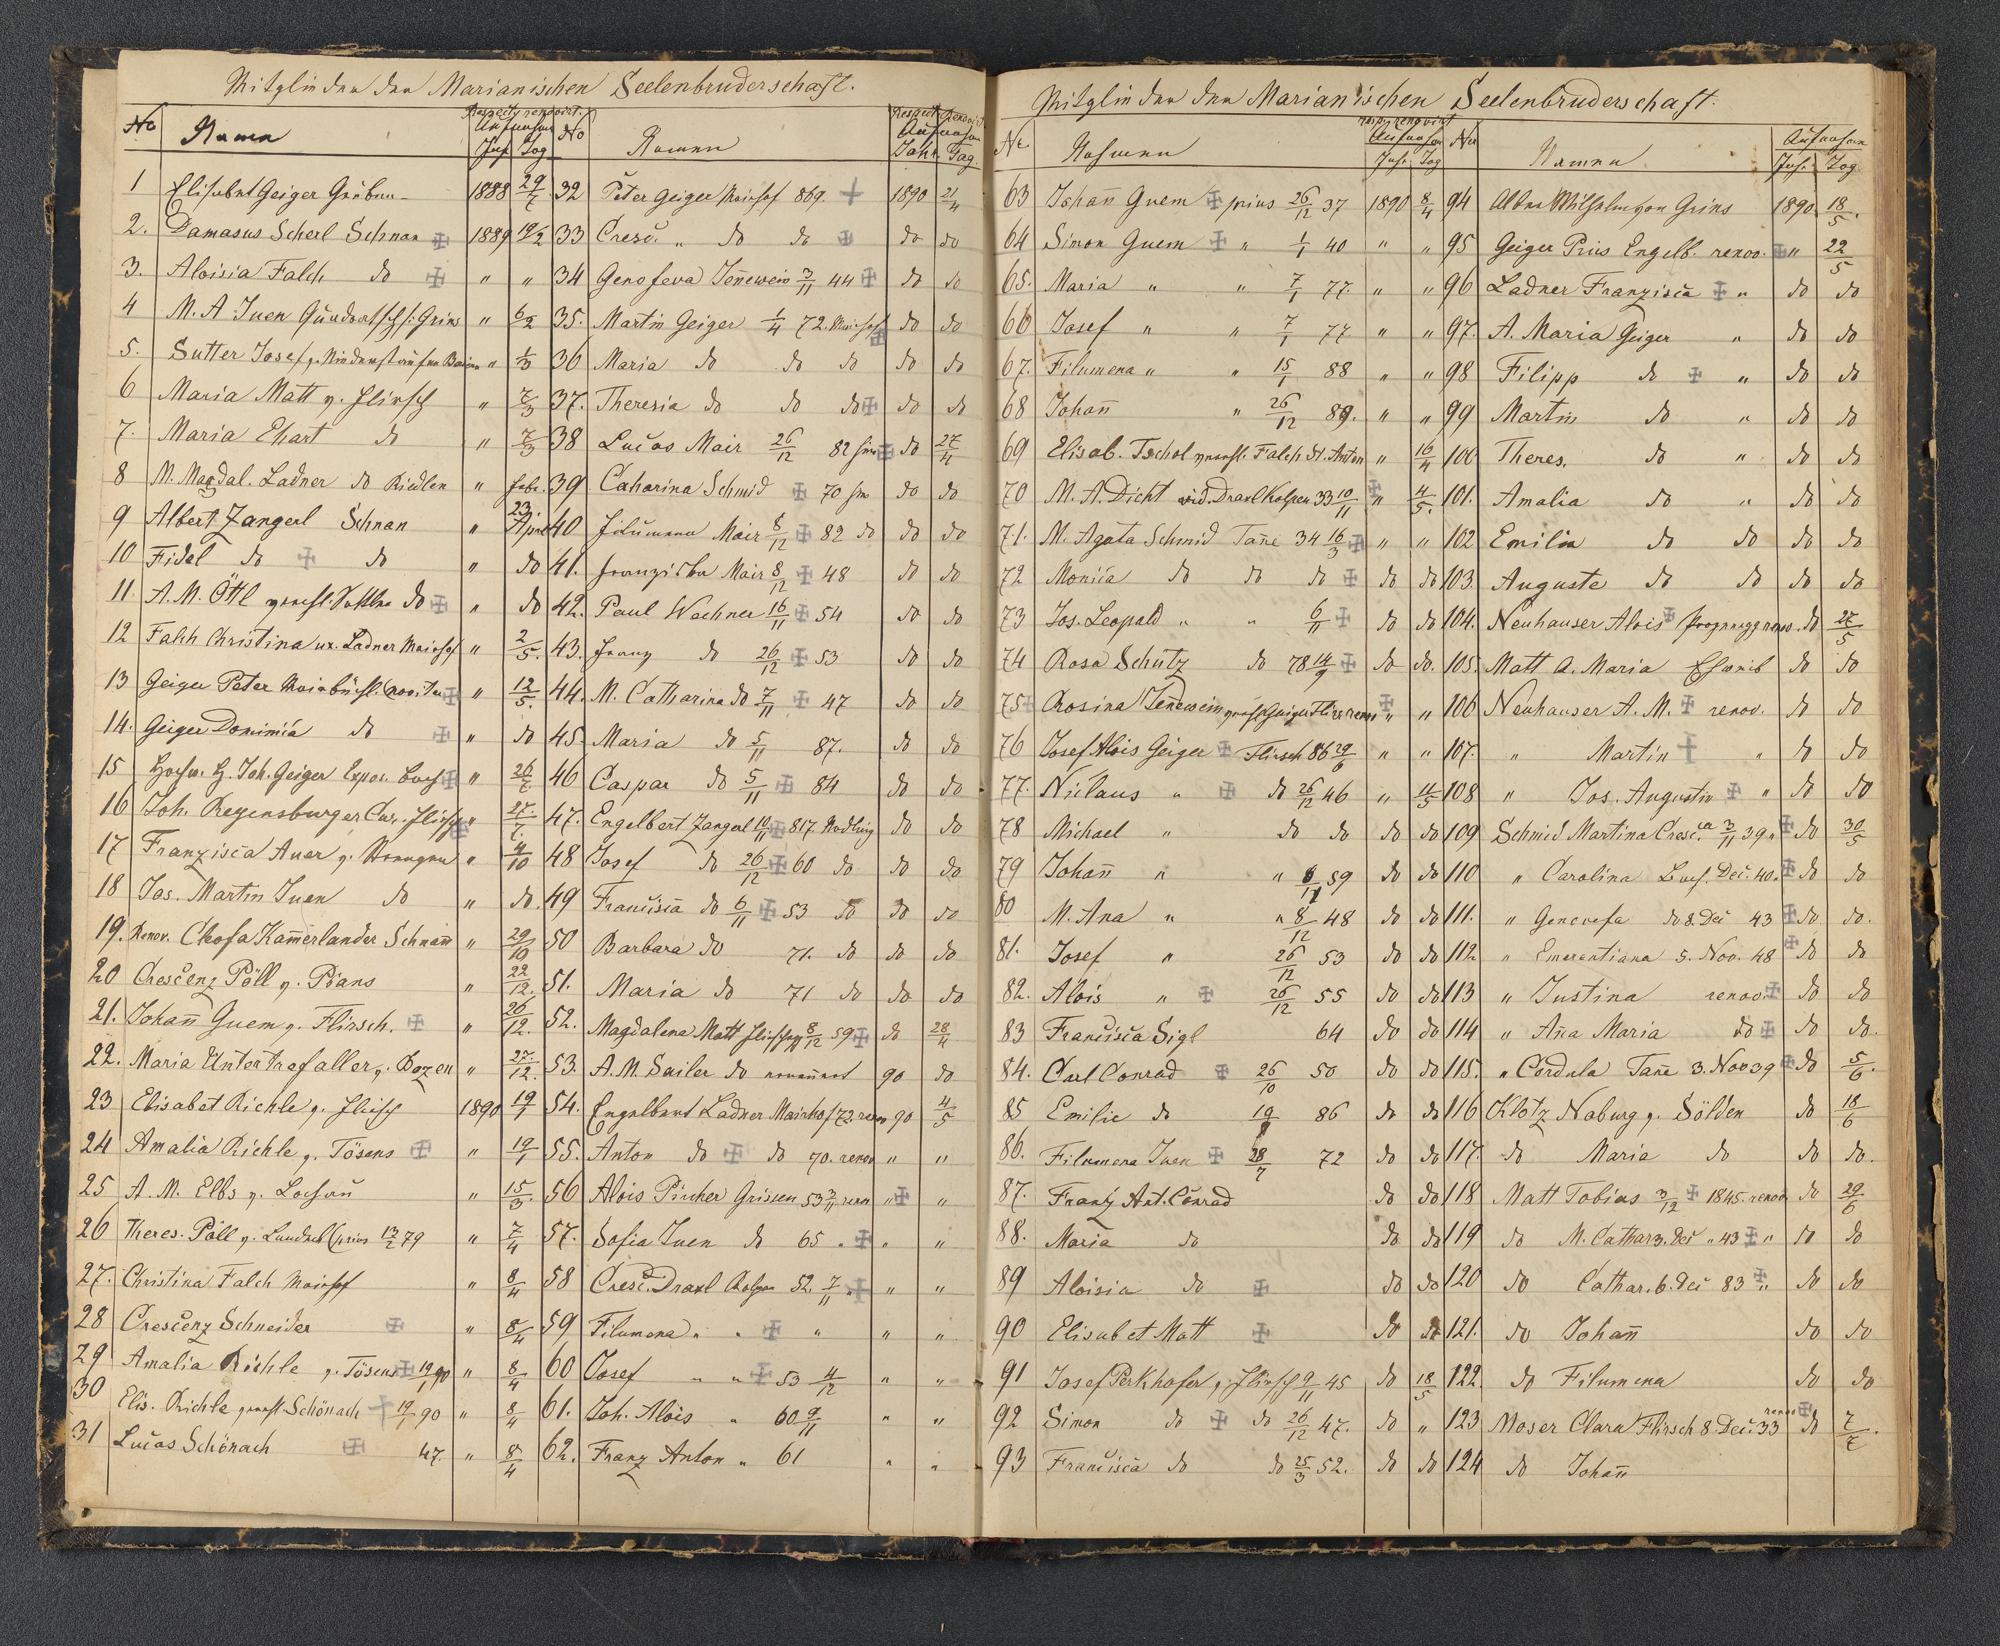 Mitglieder der Marianischen Seelenbruderschaft.
No Namen Jahr Tag
1 Elisabet Geiger 1888 29/7
2. Damasus Scherl Schnan ✠ 1889 19/2
3. Aloisia Falch do ✠ " "
4 M. A Juen Grins " 6/2
5. Sutter Josef " 1/3
6 Maria Matt v. Flirsch " 7/3
7. Maria Ehart do " 7/3
8 M. Magdal. Ladner do Riedlen " Febr.
9 Albert Zangerl Schnan " 23. April
10 Fidel do ✠ do " do
11. A. M. Öttl do ✠ " do
12 Falch Christina ux. Ladner Mairhof " 2/5.
13 Geiger Peter ✠ " 12/5.
14. Geiger Dominica do ✠ " do
15 Joh. Geiger Expos. ✠ " 26/7
16 Joh. Regensburger Cur. Flirsch ✠ " 27/7.
17 Franzisca Auer v. " 4/10
18 Jos. Martin Juen do " do.
19. Renov. Kam̄erlander Schnan̄ " 29/10
20 Crescenz Pöll v. Pians " 22/12.
21. Johan̄ Guem v. Flirsch. ✠ " 26/12.
22. Maria Untertrefaller v. Bozen " 27./12.
23 Elisabet Richle v. Flirsch 1890 19/1
24 Amalia Richle v. Tösens ✠ " 19/1
25 A. M. Elbs v. " 15/3
26 Theres. Pöll v. prius 13/2 79 " 7/4
27. Christina Falch Mairhof " 8/4
28 Crescenz Schneider ✠ " 8/4
29 Amalia Richle v. Tösens ✠ 19/1 90 " 8/4
30 Elis. Richle Schönach † 19/1 90 " 8/4
31 Lucas Schönach ✠ 47. " 8/4
No Namen Jahr Tag
32 Peter Geiger Mairhof 869. † 1890 21/4
33 Cresc. " do do ✠ do do
34 Genofeva Jen̄ewein 3/11 44 ✠ do do
35. Martin Geiger 1/4 72. Mairhof ✠ do do
36 Maria do do do do do
37. Theresia do do do ✠ do do
38 Lucas Mair 26/12 82 ✠ do 27/4
39 Catharina Schmid ✠ 70 do do
40 Filumena Mair 8/12 ✠ 82 do do do
41. Franziska Mair 8/12 ✠ 48 do do
42. Paul Wachner 16/11 ✠ 54 do do
43. Franz do 26/12 ✠ 53 do do
44. M. Catharina do 7/11 ✠ 47 do do
45. Maria do 5/11 87. do do
46 Caspar do 5/11 ✠ 84 do do
47. Engelbert Zangerl 10/11 ✠ 817. do do
48 Josef do 26/12 ✠ 60 do do do
49 Francisca do 6/11 ✠ 53 do do do
50 Barbara do 71. do do do
51. Maria do 71 do do do
52. Magdalena Matt 8/12 59 ✠ do 28/4
53. A. M. Sailer do 90 do
54. Engelbert Ladner Mairhof 72. renov 90 4/5
55. Anton do ✠ do 70. renov " "
56 Alois Pircher Grissen 53 3/11 renov " ✠ "
57. Sofia Juen do 65 " ✠ " "
58 Cresc. Draxl 52. 7/11 " ✠ " "
59 Filumena " " ✠ " " "
60 Josef " " ✠ 53 4/12 " "
61. Joh. Alois " 60 9/11 " "
62. Franz Anton " 61 " "
Mitglieder der Marianischen Seelenbruderschaft.
No Nahmen Jahr Tag
63 Johan̄ Guem ✠ prius 26/12 37 1890 8/4
64 Simon Guem ✠ " 1/1 40 " "
65. Maria " " 7/1 77. " "
66 Josef " " 7/1 77 " "
67. Filumena " " 15/1 88 " "
68 Johan̄ " 26/12 89. " "
69 Elisab. Tschol Falch St. Anton " 16/4
70 M. A. Dicht vid. Draxl 33 10/11 ✠ " 4/5.
71. M. Agata Schmid Tan̄e 34 16/3 ✠ " "
72 Monica do do do ✠ do do
73 Jos. Leopold " " 6/11 ✠ do do
74 Rosa Schütz do 78 14/9 ✠ do do.
75 ✠ Rosina Jen̄ewein Geiger renov ✠ " "
76 Josef Alois Geiger ✠ Flirsch 86 29/6 " "
77. Niclaus " ✠ do 26/12 46 " 11/5
78 Michael " do do do do
79 Johan̄ " " 8/11 59 do do
80 M. Ana " " 8/12 48 do do
81. Josef " 26/12 53 do do
82. Alois " ✠ 26/12 55 do do
83 Francisca Sigl 64 do do
84. Carl Conrad ✠ 26/10 50 do do
85 Emilie do 19 86 do do
86. Filumena Juen ✠ 28/7 72 do do
87. Franz Ant. Conrad do do
88. Maria do do do
89 Aloisia do ✠ do do
90 Elisabet Matt ✠ do do
91 Josef Perkhofer v. Flirsch 9/11 45 do 18/5
92 Simon do ✠ do 26/12 47. do "
93 Francisca do do 25/3 52. do do
No Namen Jahr Tag
94 Wilhelm von Grins 1890. 18/5.
95 Geiger Prius Engelb. renov. ✠ " 22/5
96 Ladner Franzisca ✠ " do do
97. A. Maria Geiger " do do
98 Filipp do ✠ " do do
99 Martin do " do do
100 Theres. do " do do
101. Amalia do " do do
102 Emilia do do do do
103. Auguste do do do do
104. Neuhauser Alois ✠ renov. do 27/5
105. Matt A. Maria do do
106 Neuhauser A. M. ✠ renov. do do
107. " Martin † " do do
108 " Jos. Augustin ✠ " do do
109 Schmid Martina Cresc. 3/11 39 " ✠ do 30/5
110 " Carolina Dec. 40. ✠ do do
111. " Genovefa do 8. Dec 43 ✠ do do.
112 " Emerentiana 5. Nov. 48 ✠ do do
113 " Justina renov. ✠ do do
114 " An̄a Maria do ✠ do do.
115. " Cordula Tan̄e 3. Nov 39 ✠ do 5/6.
116 Klotz Naburg v. Sölden do 18/6
117. do Maria do do do.
118 Matt Tobias 3/12 ✠ 1845. renov do 29/6
119 do M. Cathar 3. Dec " 43 ✠ " do do
120 do Cathar. 6. Dec 83 ✠ " do do
121. do Johan̄ do do
122. do Filumena do do
123 Moser Clara Flirsch 8. Dec. 33 renov ✠ do 7/7.
124 do Johan̄